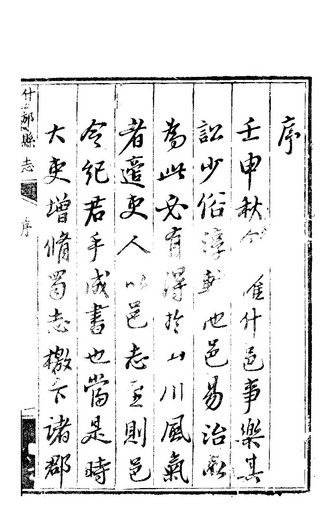 序
壬申秋 惟什邑事樂其
訟少俗淳 也邑易治
為此必有得於山川風氣
者遣吏人以邑志至則邑
令紀君手成書也當是時
大吏增脩蜀志檄下諸郡
什邡縣志
序